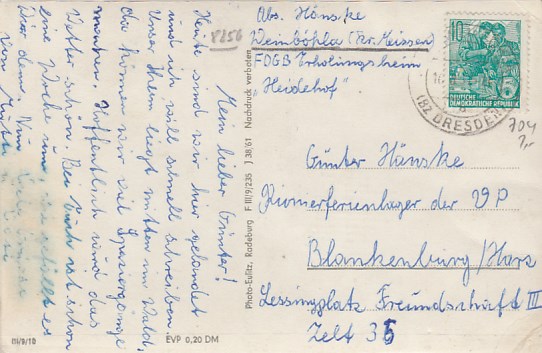 Mein lieber Günter!
Heute sind wir hier gelandet
und ich will schnell schreiben.
Unser Heim liegt mitten im Wald,
da können wir viel Spaziergänge
machen. Hoffentlich wird das
Wetter schön. Bei Euch ist schon
eine Woche um,
Dir denn. Nun
von Mutti
8256
Abs. Hänske
Weinböhla (Kr. Meissen)
FDGB Erholungsheim
"Heidehof"
10
DEUTSCHE
DEMOKRATISCHE REPUBLIK
(82 DRESDEN
704
1,-
Günter Hänske
Pionierferienlager der VP
Blankenburg/Harz
Lessingplatz Freundschaft III
Zelt 35
Photo-Eulitz, Radeburg F III/9/235 J 38/61 Nachdruck verboten
III/9/18
EVP 0,20 DM